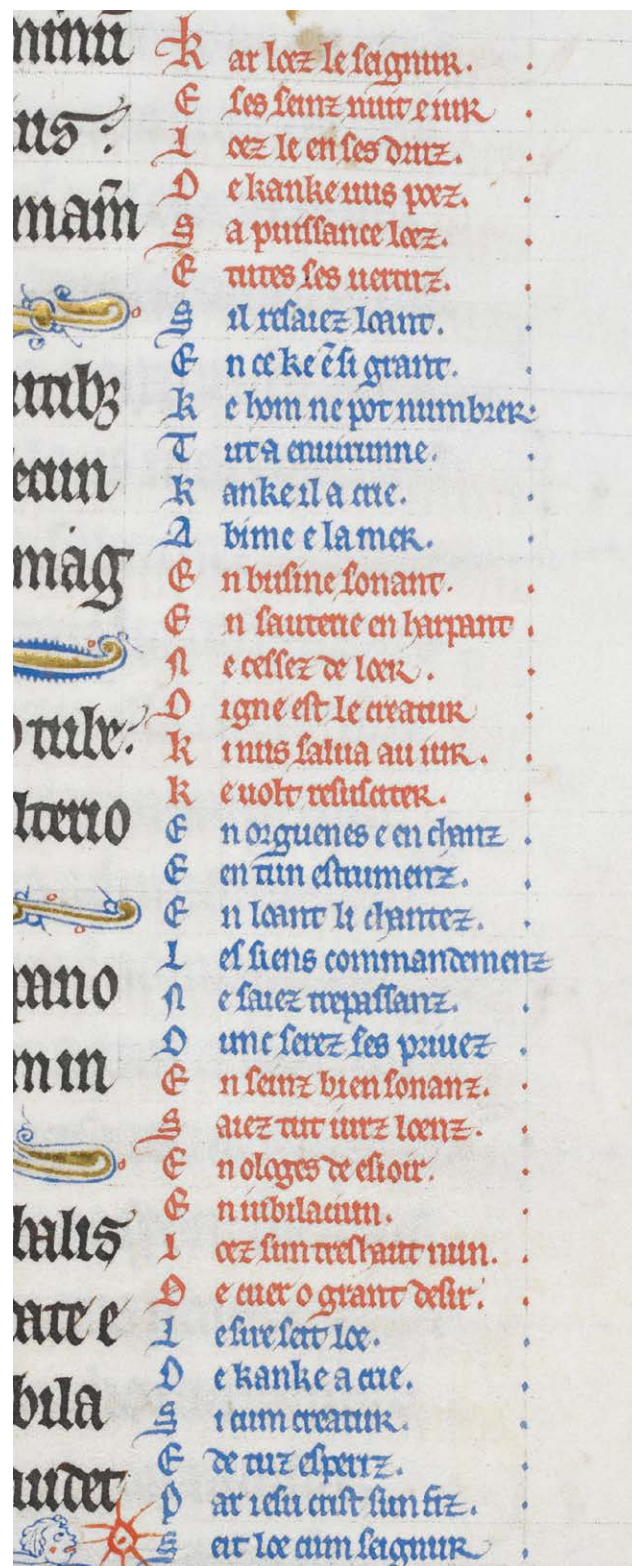 minū
K ar loez le seignur.
E ses seinz nuit e iur
us:
L oez le en ses diuz.
D e kanke uus poez.
mam̄
S a puissance loez.
E tutes ses uertuz.
S il resaiez loant.
E n ce ke ē si grant.
K e hom ne pot numbrer.
T ut a enuirunne.
ecun
K anke il a crie.
A bime e la mer.
mag
E n busine sonant.
E n sauterie en harpant.
N e cessez de loer.
D igne est le creatur
tube.
K i nus salua au iur.
K e uolt resusciter.
lterio
E n orguenes e en chanz.
E en tun estrumenz.
E n loant li chantez.
L es siens commandemenz
pano
N e saiez trepassanz.
D unc serez ses priuez.
m in
E n seinz bien sonanz.
S aiez tut iurz loenz.
E n ologes de esioir.
E n iubilaciun.
balis
L oez sun treshaut nun.
D e cuer o grant desir.
ate e
L e sire seit loe.
D e kanke a crie.
bila
S i cum creatur.
E de tuz esperiz.
udet
P ar iesu crist sun fiz.
S eit loe cum seignur.